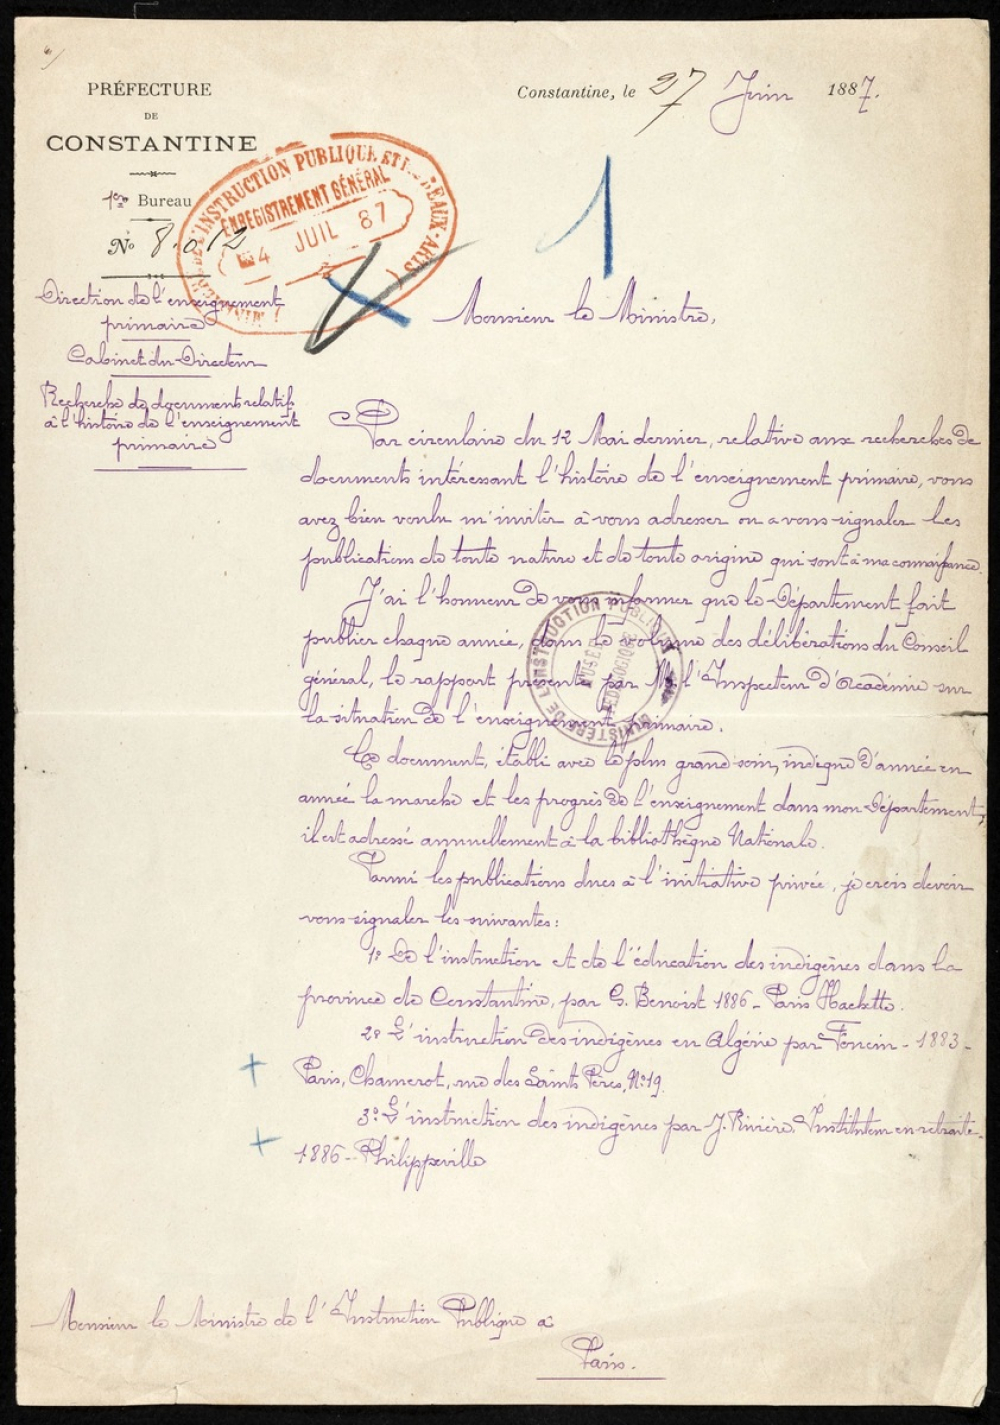 PRÉFECTURE
DE
CONSTANTINE
1er Bureau
No 8.012
Constantine, le 27 Juin 1887.
MINISTÈRE DE L'INSTRUCTION PUBLIQUE ET DES BEAUX-ARTS
ENREGISTREMENT GÉNÉRAL
4 JUIL 87
1
Direction de l'enseignement
primaire
Cabinet du Directeur
Recherche de documents relatifs
à l'histoire de l'enseignement
primaire
Monsieur le Ministre,
Par circulaire du 12 Mai dernier, relative aux recherches de
documents intéressant l'histoire de l'enseignement primaire, vous
avez bien voulu m'inviter à vous adresser ou a vous signaler les
publications de toute nature et de toute origine qui sont à ma connaissance.
J'ai l'honneur de vous informer que le Département fait
publier chaque année, dans le volume des délibérations du Conseil
général, le rapport présenté par M. l'Inspecteur d'Académie sur
la situation de l'enseignement primaire.
MINISTÈRE DE L'INSTRUCTION PUBLIQUE
MUSÉE
PÉDAGOGIQUE
Ce document, établi avec le plus grand soin, indique d'année en
année la marche et les progrès de l'enseignement dans mon Département;
il est adressé annuellement à la bibliothèque Nationale.
Parmi les publications dues à l'initiative privée, je crois devoir
vous signaler les suivantes:
1° De l'instruction et de l'éducation des indigènes dans la
province de Constantine, par G. Benoist 1886 - Paris Hachette.
2° L'instruction des indigènes en Algérie par Foncin - 1883 -
Paris, Chamerot, rue des Saints Pères, No 19.
3° L'instruction des indigènes par J. Rivière, Instituteur en retraite -
1886 - Philippeville
Monsieur le Ministre de l'Instruction Publique à
Paris.